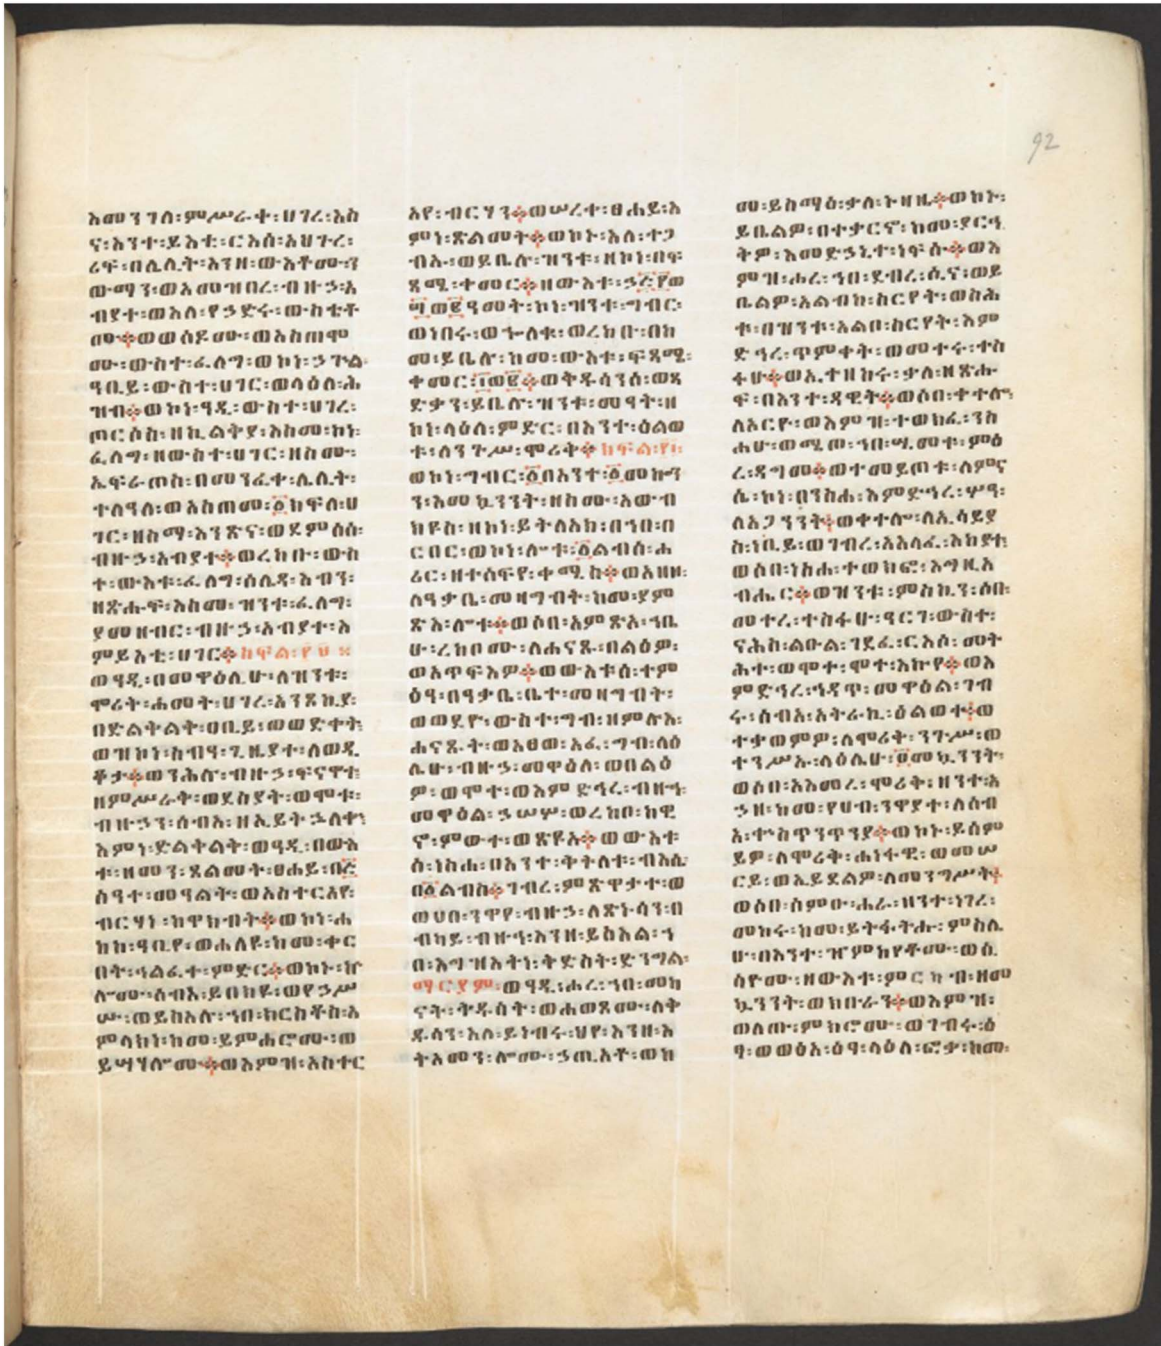 92
እመንገለ፡ምሥራቀ፡ሀገረ፡እስ
ና፡እንተ፡ይእቲ፡ርእሰ፡አህጉረ፡
ሪፍ፡በሌሊት፡እንዘ፡ውእቶሙ፡ን
ውማን፡ወአመዝበረ፡ብዙኃ፡አ
ብያተ፡ወእለ፡የኃድሩ፡ውስቴቶ
ሙ፨ወወሰዶሙ፡ወአስጠሞ
ሙ፡ውስተ፡ፈለግ፡ወኮነ፡ኃጕል
ዓቢይ፡ውስተ፡ሀገር፡ወላዕለ፡ሕ
ዝብ፨ወኮነ፡ዓዲ፡ውስተ፡ሀገረ፡
ጠርሰስ፡ዘኪልቅያ፡እስመ፡ኮነ፡
ፈለግ፡ዘውስተ፡ሀገር፡ዘስሙ፡
ኤፍራጦስ፡በመንፈቀ፡ሌሊት፡
ተለዓለ፡ወአስጠመ፡፩ክፍለ፡ሀ
ገር፡ዘስማ፡እንጽና፡ወደምሰሰ፡
ብዙኃ፡አብያተ፨ወረከቡ፡ውስ
ተ፡ውእቱ፡ፈለግ፡ሰሌዳ፡እብን፡
ዘጽሑፍ፡እስመ፡ዝንቱ፡ፈለግ፡
ያመዘብር፡ብዙኃ፡አብያተ፡እ
ምይእቲ፡ሀገር፨ክፍል፡
ወዓዲ፡በመዋዕሊሁ፡ለዝንቱ፡
ሞሪት፡ሐመት፡ሀገረ፡አንጾኪያ፡
በድልቅልቅ፡ዐቢይ፡ወወድቀት
ወዝ፡ኮነ፡ስብዓ፡ጊዜያተ፡ለወዲ
ቆታ፨ወንሕሉ፡ብዙኃ፡ፍናዋተ፡
ዘምሥራቅ፡ወደስያት፡ወሞቱ፡
ብዙኃን፡ሰብእ፡ዘኢይት
እምነ፡ድልቅልቅ፡ወዓዲ፡በውእ
ቱ፡ዘመን፡ጸልመት፡ፀሐይ፡በ፩
ሰዓተ፡መዓልት፡ወአስተርአየ፡
ብርሃነ፡ከዋክብት፨ወኮነ፡ሐ
ከከ፡ዓቢየ፡ወሐለየ፡ከመ፡ቀር
በት፡ኅልፈተ፡ምድር፨ወኮኑ፡ኵ
ሎሙ፡ሰብእ፡ይበክዩ፡ወየኃሥ
ሡ፡ወይስእሉ፡ኀበ፡ክርስቶስ፡አ
ምላክነ፡ከመ፡ይምሐሮሙ፡ወ
ይሣሃሎሙ፨ወእምዝ፡አስተር
አየ፡ብርሃን፨ወሠረቀ፡ፀሐይ፡እ
ምነ፡ጽልመት፨ወኮኑ፡እለ፡ተጋ
ብኡ፡ወይቤሉ፡ዝንቱ፡ዘኮነ፡በፍ
ጻሜ፡ተመር፨ዘውእቱ፡
ዓመት፡ኮነ፡ዝንቱ፡ግብር፡
ወነበሩ፡ወኈለቁ፡ወረከቡ፡በከ
መ፡ይቤሉ፡ከመ፡ውእቱ፡ፍጻሜ፡
ቀመር፡፲ወ፪፨ወቅዱሳንሰ፡ወጻ
ድቃን፡ይቤሉ፡ዝንቱ፡መዓት፡ዘ
ኮነ፡ላዕለ፡ምድር፡በእንተ፡ዕልወ
ቱ፡ለንጉሥ፡ሞሪቅ፨ክፍል፡
ወኮነ፡ግብር፡፩በእንተ፡፩መኰን
ን፡እመኳንንት፡ዘስሙ፡አውብ
ክዩስ፡ዘኮነ፡ይትለአክ፡በኀበ፡በ
ርበር፡ወኮነ፡ሎቱ፡፩ልብሰ፡ሐ
ሪር፡ዘተሰፍየ፡ቀሚስ፨ወአዘዘ፡
ለዓቃቤ፡መዛግብት፡ከመ፡ያም
ጽእ፡ሎቱ፨ወሶበ፡አምጽአ፡ኀቤ
ሁ፡ረከቦሙ፡ለሐናጹ፡በልዕዎ፡
ወአጥፍእዎ፨ወውእቱሰ፡ተም
ዕዓ፡በዓቃቤ፡ቤተ፡መዛግብት፡
ወወደዮ፡ውስተ፡ግብ፡ዘምሉእ፡
ሐናጹት፡ወአፀወ፡አፈ፡ግብ፡ላዕ
ሌሁ፡ብዙኃ፡መዋዕለ፡ወበልዕ
ዎ፡ወሞተ፡ወእምድኅረ፡ብዙኅ፡
መዋዕል፡ኃሠሦ፡ወረከቦ፡ከዊ
ኖ፡ምውተ፡ወጽዩአ፨ወውእቱ
ሰ፡ነስሐ፡በእንተ፡ቅትለቱ፡ብእሴ
በ፩ልብስ፨ገብረ፡ምጽዋታተ፡ወ
ወሀበ፡ንዋየ፡ብዙኃ፡ለጽኑሳን፡በ
ብካይ፡ብዙኅ፡እንዘ፡ይስእል፡ኀ
በ፡እግዝእትነ፡ቅድስት፡ድንግል፡
ማርያም፡ወዓዲ፡ሐረ፡ኀበ፡መካ
ናት፡ቅዱሳት፡ወሐወጾሙ፡ለቅ
ዱሳን፡እለ፡ይነብሩ፡ህየ፡እንዘ፡አ
ትአመን፡ሎሙ፡ኃጢአቶ፡ወከ
መ፡ይስማዕ፡ቃለ፡ኑዛዜ፨ወኮኑ፡
ይቤልዎ፡በተቃርኖ፡ከመ፡ያርኅ
ቅዎ፡እመድኃኒተ፡ነፍሱ፨ወእ
ምዝ፡ሐረ፡ኀበ፡ደብረ፡ሲና፡ወይ
ቤልዎ፡አልብከ፡ስርየት፡ወስሕ
ቱ፡በዝንቱ፡አልቦ፡ስርየት፡እም
ድኅረ፡ጥምቀት፡ወመተሩ፡ተስ
ፋሁ፨ወኢተዘከሩ፡ቃለ፡ዘጽሑ
ፍ፡በእንተ፡ዳዊት፨ወሶበ፡ቀተሎ፡
ለኦርዮ፡ወእምዝ፡ተወክፈ፡ንስ
ሐሁ፡ወሚጦ፡ኀበ፡ሢመቱ፡ምዕ
ረ፡ዳግመ፨ወተመይጦቱ፡ለምና
ሴ፡ኮነ፡በንስሐ፡እምድኅረ፡ሦዓ፡
ለአጋንንት፨ወቀተሎ፡ለኢሳይያ
ስ፡ነቢይ፡ወገብረ፡አእላፈ፡እከያተ
ወሶበ፡ነስሐ፡ተወክፎ፡እግዚአ
ብሔር፨ወዝንቱ፡ምስኪን፡ሶበ፡
መተረ፡ተስፋሁ፡ዓርገ፡ውስተ፡
ናሕስ፡ልዑል፡ገደፈ፡ርእሰ፡መት
ሕተ፡ወሞተ፡ሞተ፡እኩየ፨ወእ
ምድኅረ፡ኅዳጥ፡መዋዕል፡ገብ
ሩ፡ሰብአ፡አትራኪ፡ዕልወተ፨ወ
ተቃወምዎ፡ለሞሪቅ፡ንጉሥ፡ወ
ተንሥኡ፡ላዕሌሁ፡፬መኳንንት፡
ወሶበ፡አእመረ፡ሞሪቅ፡ዘንተ፡አ
ኃዘ፡ከመ፡የሀብ፡ንዋያተ፡ለሰብ
አ፡ቍስጥንጥንያ፨ወኮኑ፡ይሰም
ይዎ፡ለሞሪቅ፡ሐነፋዊ፡ወመሠ
ርይ፡ወኢይደልዎ፡ለመንግሥት፨
ወሶበ፡ሰምዑ፡ሐራ፡ዘንተ፡ነገረ፡
መከሩ፡ከመ፡ይትፋትሑ፡ምስሌ
ሁ፡በእንተ፡ዝምክየቶሙ፡ወሰ
ሳዮሙ፡ዘውእቱ፡ምርካብ፡ዘመ
ኳንንት፡ወክቡራን፨ወእምዝ፡
ወለጡ፡ምክሮሙ፡ወገብሩ፡ዕ
ዓ፡ወወፅአ፡ዕዓ፡ላዕለ፡ፎቃ፡ከመ፡